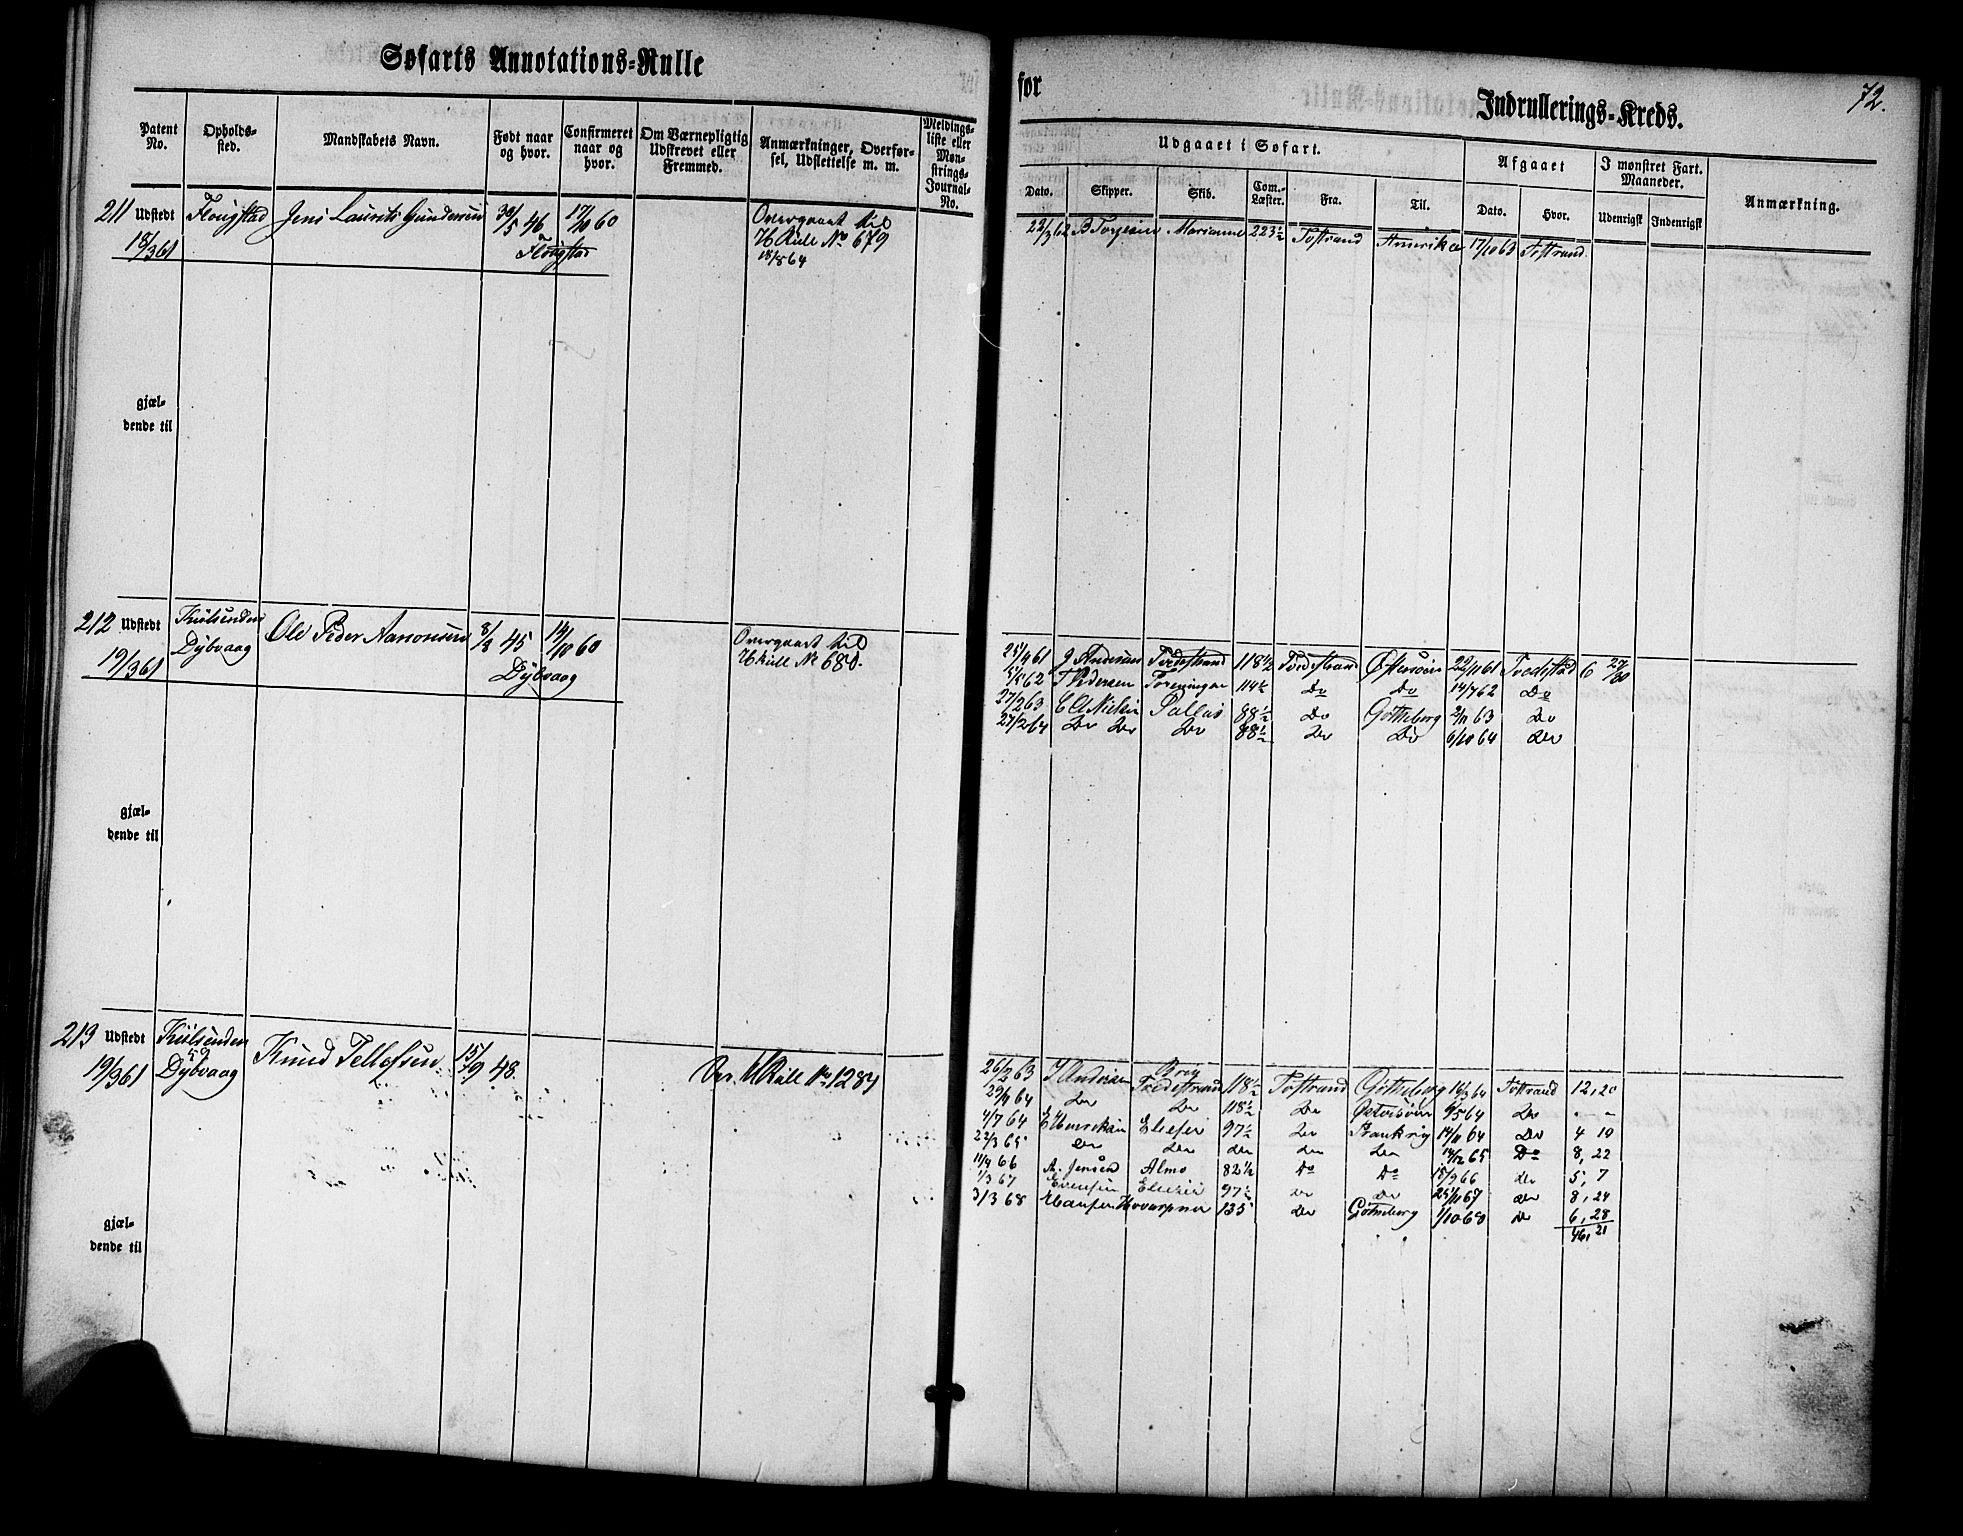 Søfarts Annotations-Rulle
Patent No. Opholds-sted. Mandskabets Navn. Født naar og hvor. Confirmeret naar og hvor. Om Værnepligtig Udskrevet eller Fremmed. Anmærkninger, Overførsel, Udslettelse m. m. Meldings-liste eller Mønstrings-Journal-No.
211 Udstedt Flougstad Jens Laurits Gundersen 30/5 46 17/10 60 Overgaaet til
18/3 61 Flougstad H Rulle No 679
18/8 64
gjæl-
dende til
212 Udstedt Kiilsunden Ole Peder Aanonsen 8/3 45 14/10 60 Overgaaet til
19/3 61 Dybvaag Dybvaag H Rull No 680.
gjæl-
dende til
213 Udstedt Kiilsunden Knud Tellefsen 15/9 48.
19/3 61 Dybvaag H Rull No 1284
gjæl-
dende til
for Indrullerings-Kreds. 72.
Udgaaet i Søfart. Afgaaet I mønstret Fart. Maaneder. Anmærkning.
Dato. Skipper. Skib. Com.-Læster. Fra. Til. Dato. Hvor. Udenrigsk Indenrigsk
22/3 62 B Torjesen Marianne 223 1/2 Tvstrand Amerika 17/10 63 Tvstrand
25/4 61 J Andersen Tvedestrand 118 1/2 Tvedestrand Østersøen 22/11 61 Tvedestrand 6 27/30
62 T Pedersen Foreningen 114 1/2 Do Do 14/7 62 Do
27/2 63 E A Nielsen Pallas 88 1/2 Do Gøtheborg 2/11 63 Do
27/2 64 Do Do Do 88 1/2 Do Do 6/10 64 Do
26/2 63 J Andersen Brig Tvedestrand 118 1/2 Tvstrand Gøtheborg 16/3 64 Tvstrand 12, 20
29/4 64 Do Do 118 1/2 Do Østersøen 64 Do - -
4/7 64 E Henriksen Elieser 97 1/2 Do Frankrig 14/11 64 Do 4 19
22/3 65 Do Do Do Do Do 14/12 65 Do 8, 22
11/4 66 A. Jensen Alma 82 1/2 Do Do 18/9 66 Do 5, 7
1/3 67 Evensen Elieser 97 1/2 Do Do 25/11 67 Do 8, 24
3/3 68 Hansen 135 Do Gøtheborg 1/10 68 Do 6, 28
46, 21